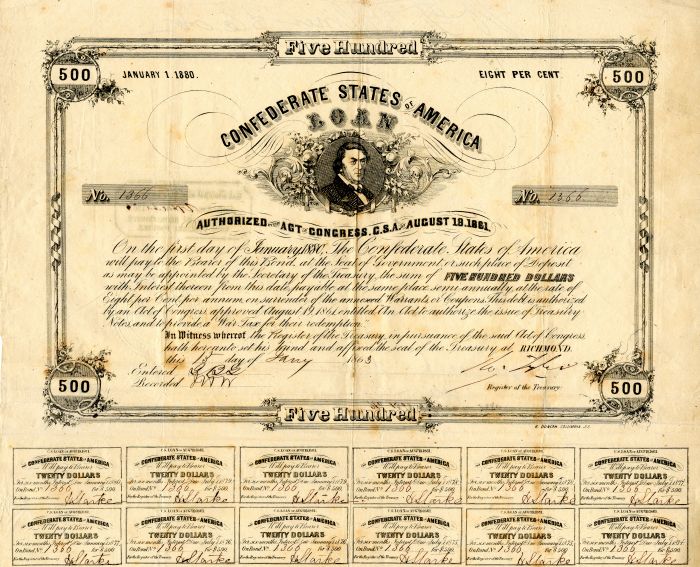 Five Hundred
500
JANUARY 1. 1880.
EIGHT PER CENT
500
CONFEDERATE STATES OF AMERICA
LOAN
No. 1366
No. 1366
AUTHORIZED BY ACT OF CONGRESS, C.S.A. OF AUGUST 19. 1861.
On the first day of January, 1880, The Confederate States of America
will pay to the Bearer of this Bond, at the Seat of Government, or such place of Deposit
as may be appointed by the Secretary of the Treasury, the sum of FIVE HUNDRED DOLLARS
with Interest thereon from this date, payable at the same place semi annually, at the rate of
Eight per Cent per annum, on surrender of the annexed Warrants or Coupons. This debt is authorized
by an Act of Congress, approved August 19, 1861, entitled An Act to authorize the issue of Treasury
Notes, and to provide a War Tax for their redemption.
In Witness whereof, the Register of the Treasury, in pursuance of the said Act of Congress,
hath hereunto set his hand and affixed the seal of the Treasury, at RICHMOND,
this 15 day of Jany 1863
Entered
Recorded
Register of the Treasury
500
500
Five Hundred
CONFEDERATE STATES OF AMERICA
Will pay to Bearer
TWENTY DOLLARS
On Bond No. 1366 for $500
CONFEDERATE STATES OF AMERICA
Will pay to Bearer
TWENTY DOLLARS
On Bond No. 1366 for $500
CONFEDERATE STATES OF AMERICA
Will pay to Bearer
TWENTY DOLLARS
On Bond No. 1366 for $500
CONFEDERATE STATES OF AMERICA
Will pay to Bearer
TWENTY DOLLARS
On Bond No. 1366 for $500
CONFEDERATE STATES OF AMERICA
Will pay to Bearer
TWENTY DOLLARS
On Bond No. 1366 for $500
CONFEDERATE STATES OF AMERICA
Will pay to Bearer
TWENTY DOLLARS
On Bond No. 1366 for $500
CONFEDERATE STATES OF AMERICA
Will pay to Bearer
TWENTY DOLLARS
On Bond No. 1366 for $500
CONFEDERATE STATES OF AMERICA
Will pay to Bearer
TWENTY DOLLARS
On Bond No. 1366 for $500
CONFEDERATE STATES OF AMERICA
Will pay to Bearer
TWENTY DOLLARS
On Bond No. 1366 for $500
CONFEDERATE STATES OF AMERICA
Will pay to Bearer
TWENTY DOLLARS
On Bond No. 1366 for $500
CONFEDERATE STATES OF AMERICA
Will pay to Bearer
TWENTY DOLLARS
On Bond No. 1366 for $500
CONFEDERATE STATES OF AMERICA
Will pay to Bearer
TWENTY DOLLARS
On Bond No. 1366 for $500